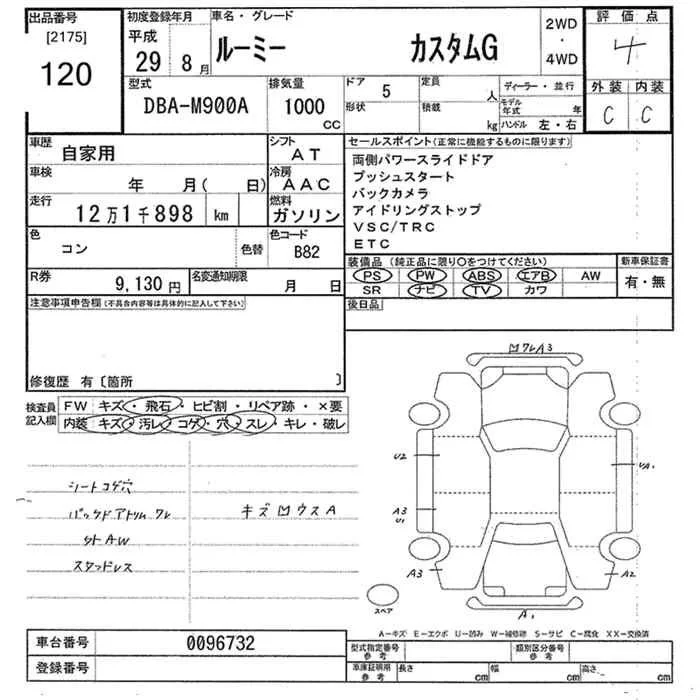 出品番号
[2175]
120
初度登録年月
平成
29 8 月
車名・グレード
ルーミー カスタムG
2WD
・
4WD
評価点
4
外装 内装
C C
型式
DBA-M900A
排気量
1000
CC
ドア 5
形状
定員 人
積載 kg
ディーラー・並行
モデル年式 年
ハンドル 左・右
車歴
自家用
シフト
AT
車検
年 月( 日)
冷房
AAC
走行
12万1千898 km
燃料
ガソリン
色
コン
色替
色コード
B82
R券
9,130 円
名変通知期限
月 日
セールスポイント(正常に機能するものに限ります)
両側パワースライドドア
プッシュスタート
バックカメラ
アイドリングストップ
VSC/TRC
ETC
装備品 (純正品に限り〇をつけてください)
PS PW ABS エアB AW
SR ナビ TV カワ
新車保証書
有・無
後日品
注意事項申告欄(不具合内容等は具体的に記入して下さい)
修復歴 有〔箇所 〕
検査員
記入欄
FW キズ・飛石・ヒビ割・リペア跡・×要
内装 キズ・汚レ・コゲ・穴・スレ・キレ・破レ
シートコゲ穴
バックドアトリムワレ
外AW
スタッドレス
キズ凹ウスA
凹ワレA3
U2
A3
U1
A3
UA1
A2
A1
スペア
A―キズ E―エクボ U―凹み W―補修跡 S―サビ C―腐化 XX―交換済
車台番号
0096732
登録番号
型式指定番号
参考
類別区分番号
参考
車庫証明用
参考
長さ cm
幅 cm
高さ cm